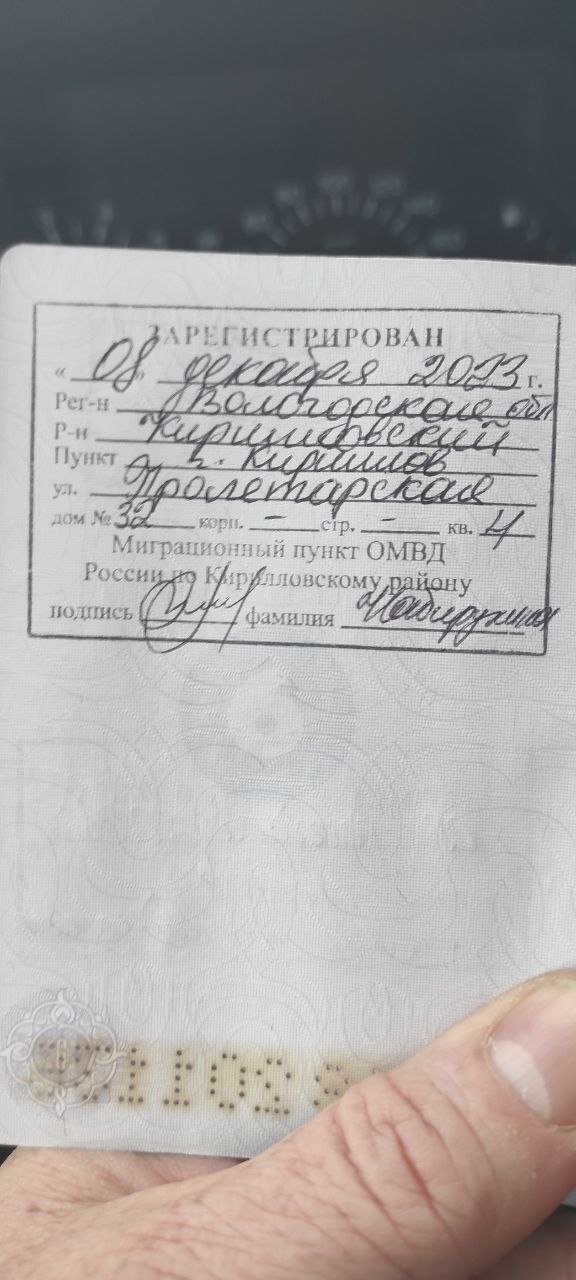 ЗАРЕГИСТРИРОВАН
« 08 » декабря 2023 г.
Рег-н Вологодская обл
Р-н Кирилловский
Пункт г. Кириллов
ул. Пролетарская
дом № 32 корп. – стр. – кв. 4
Миграционный пункт ОМВД
России по Кирилловскому району
подпись фамилия